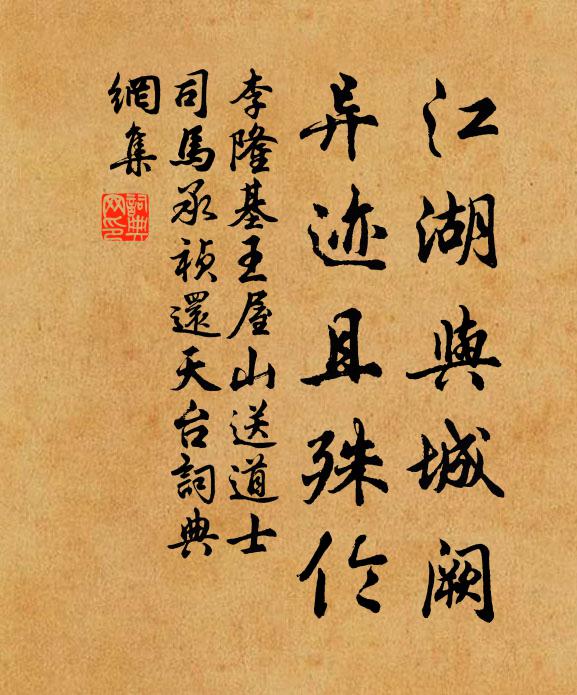 江湖與城阙
异迹且殊伦
李隆基王屋山送道士
司馬承禎還天台詞典
網集
詞典網印